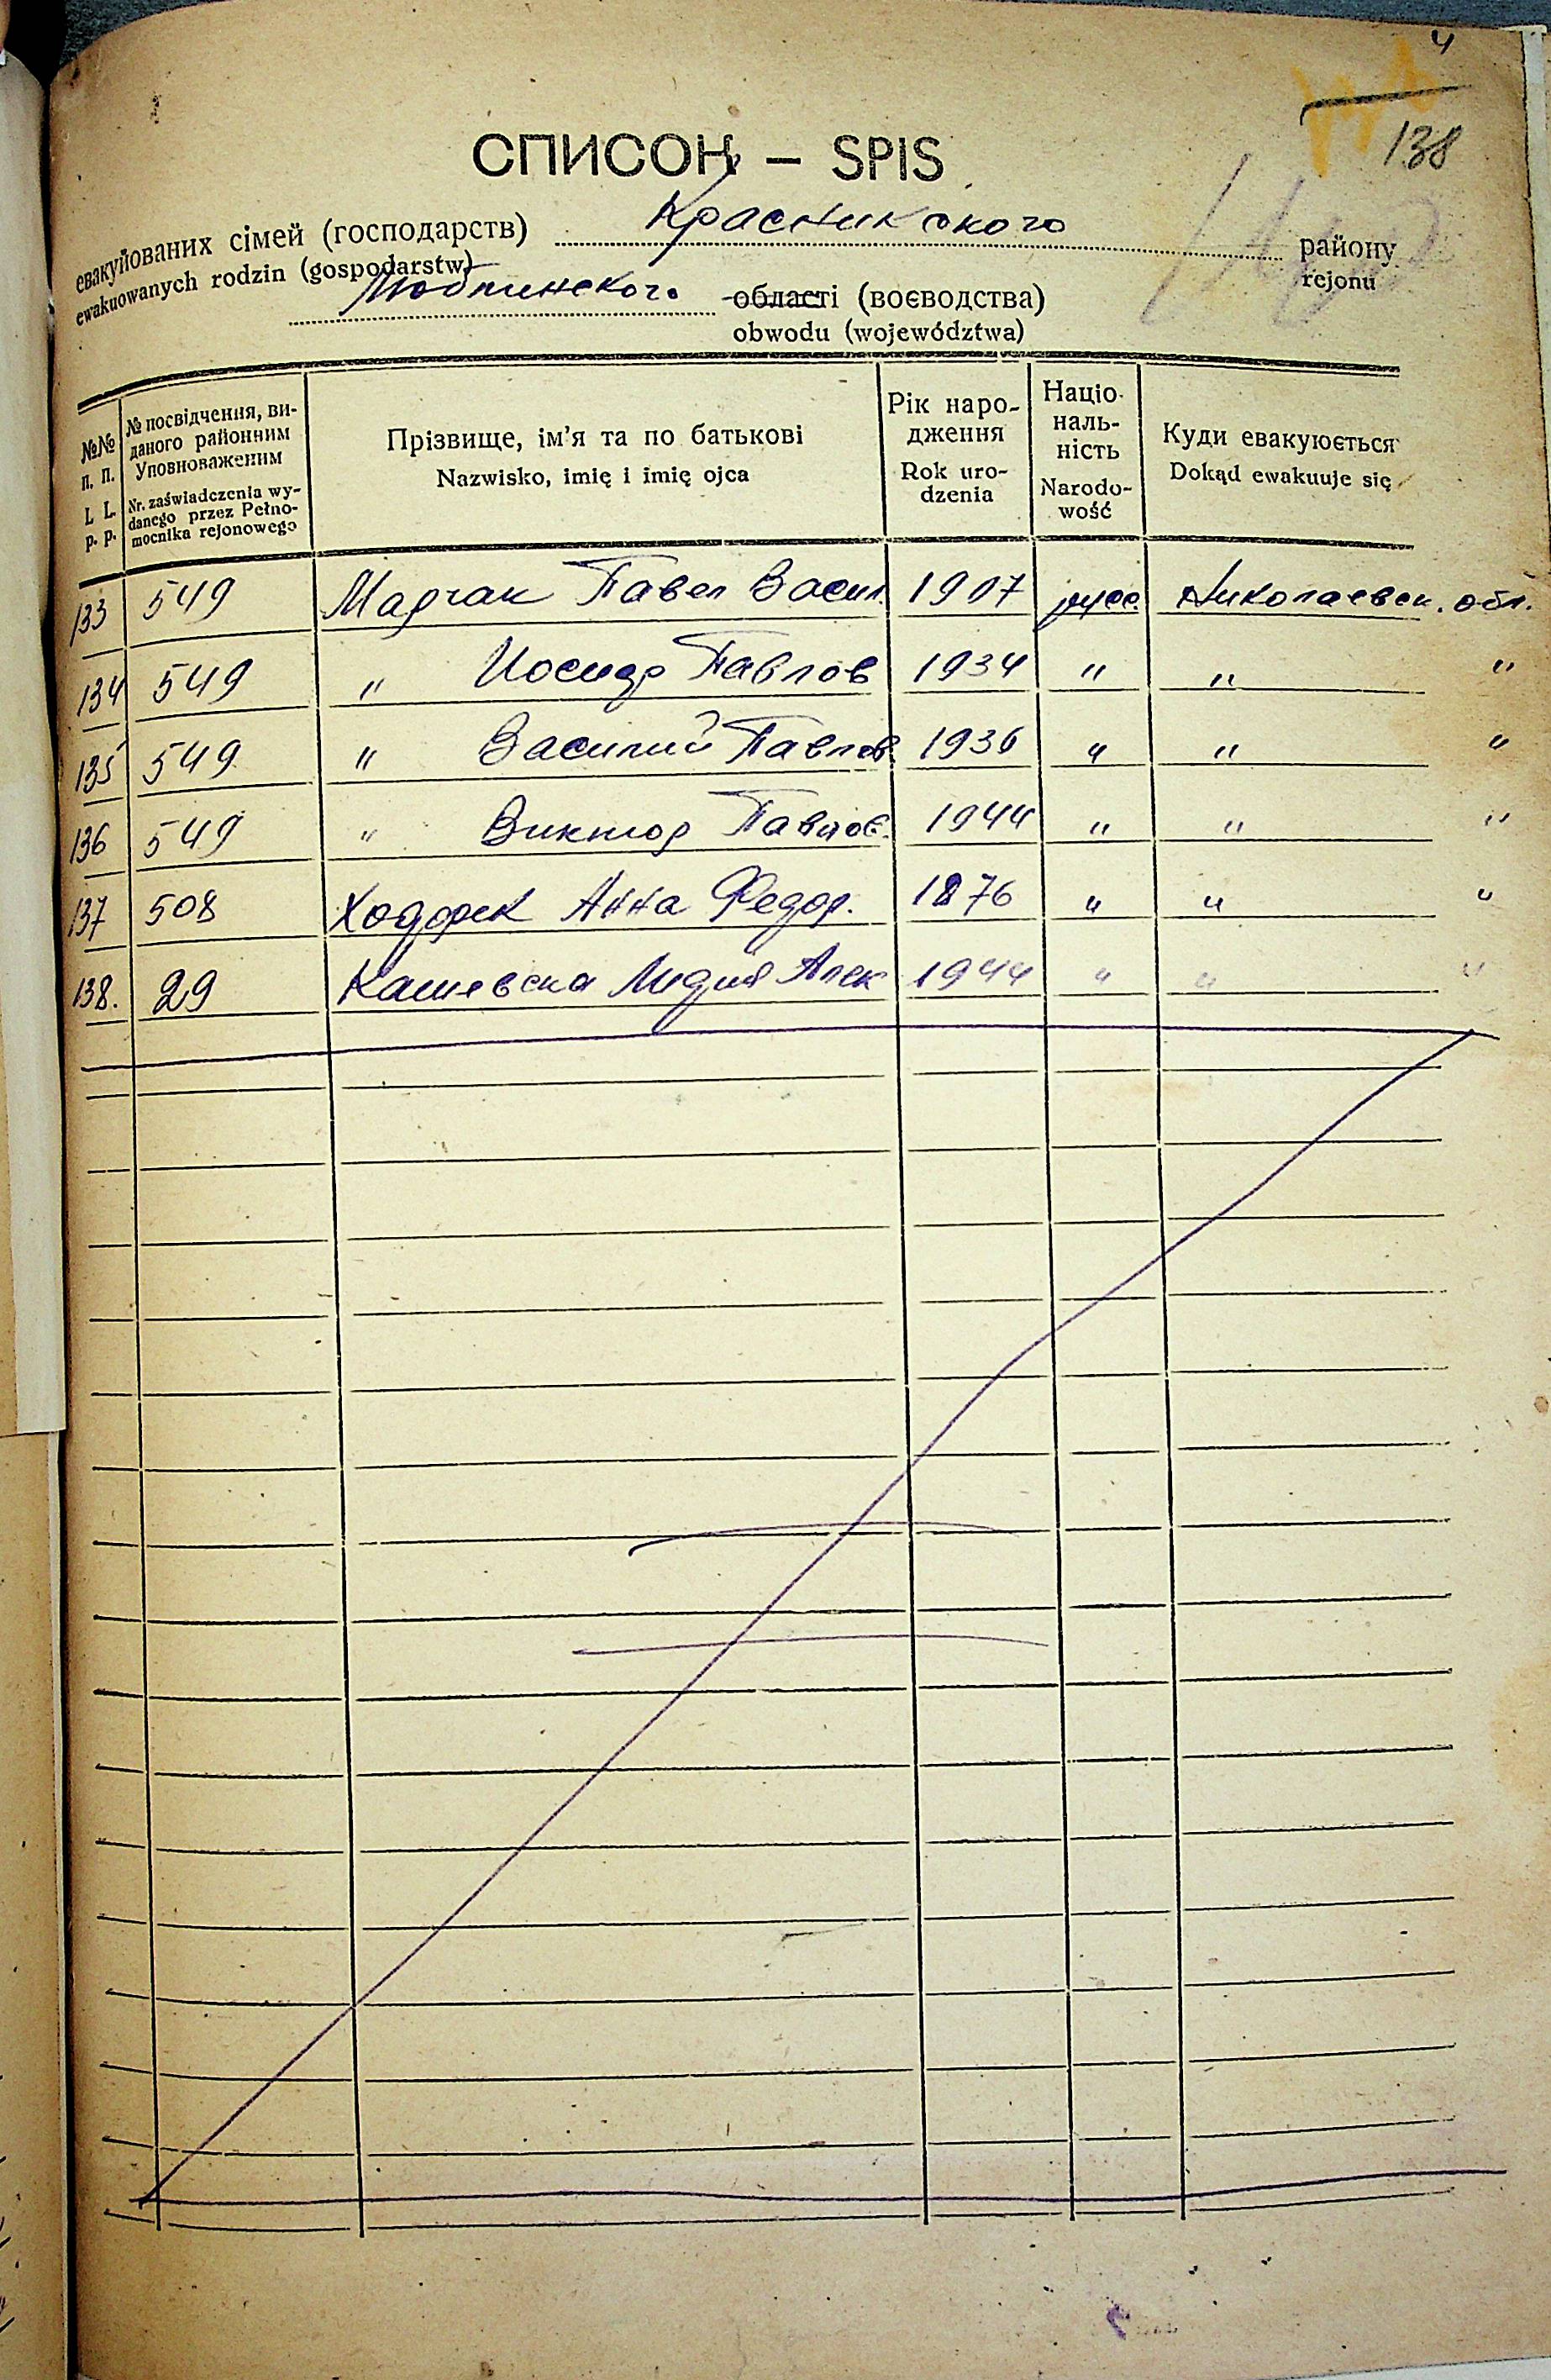 4
138
СПИСОК – SPIS
евакуйованих сімей (господарств) Красникского району
ewakuowanych rodzin (gospodarstw) rejonu
Люблинского області (воєводства)
obwodu (województwa)
№№ п. п. L L. p. p.
№ посвідчення, виданого районним Уповноваженим Nr. zaświadczenia wydanego przez Pełnomocnika rejonowego
Прізвище, ім'я та по батькові Nazwisko, imię i imię ojca
Рік народження Rok urodzenia
Національність Narodowość
Куди евакуюється Dokąd ewakuuje się
133 549 Марчак Павел Васил. 1907 русс. Николаевск. обл.
134 549 " Иосиф Павлов 1934 " " "
135 549 " Василий Павлов. 1936 " " "
136 549 " Виктор Павлов. 1944 " " "
137 508 Ходорек Анна Федор. 1876 " " "
138. 29 Кашевска Лидия Алек 1944 " " "